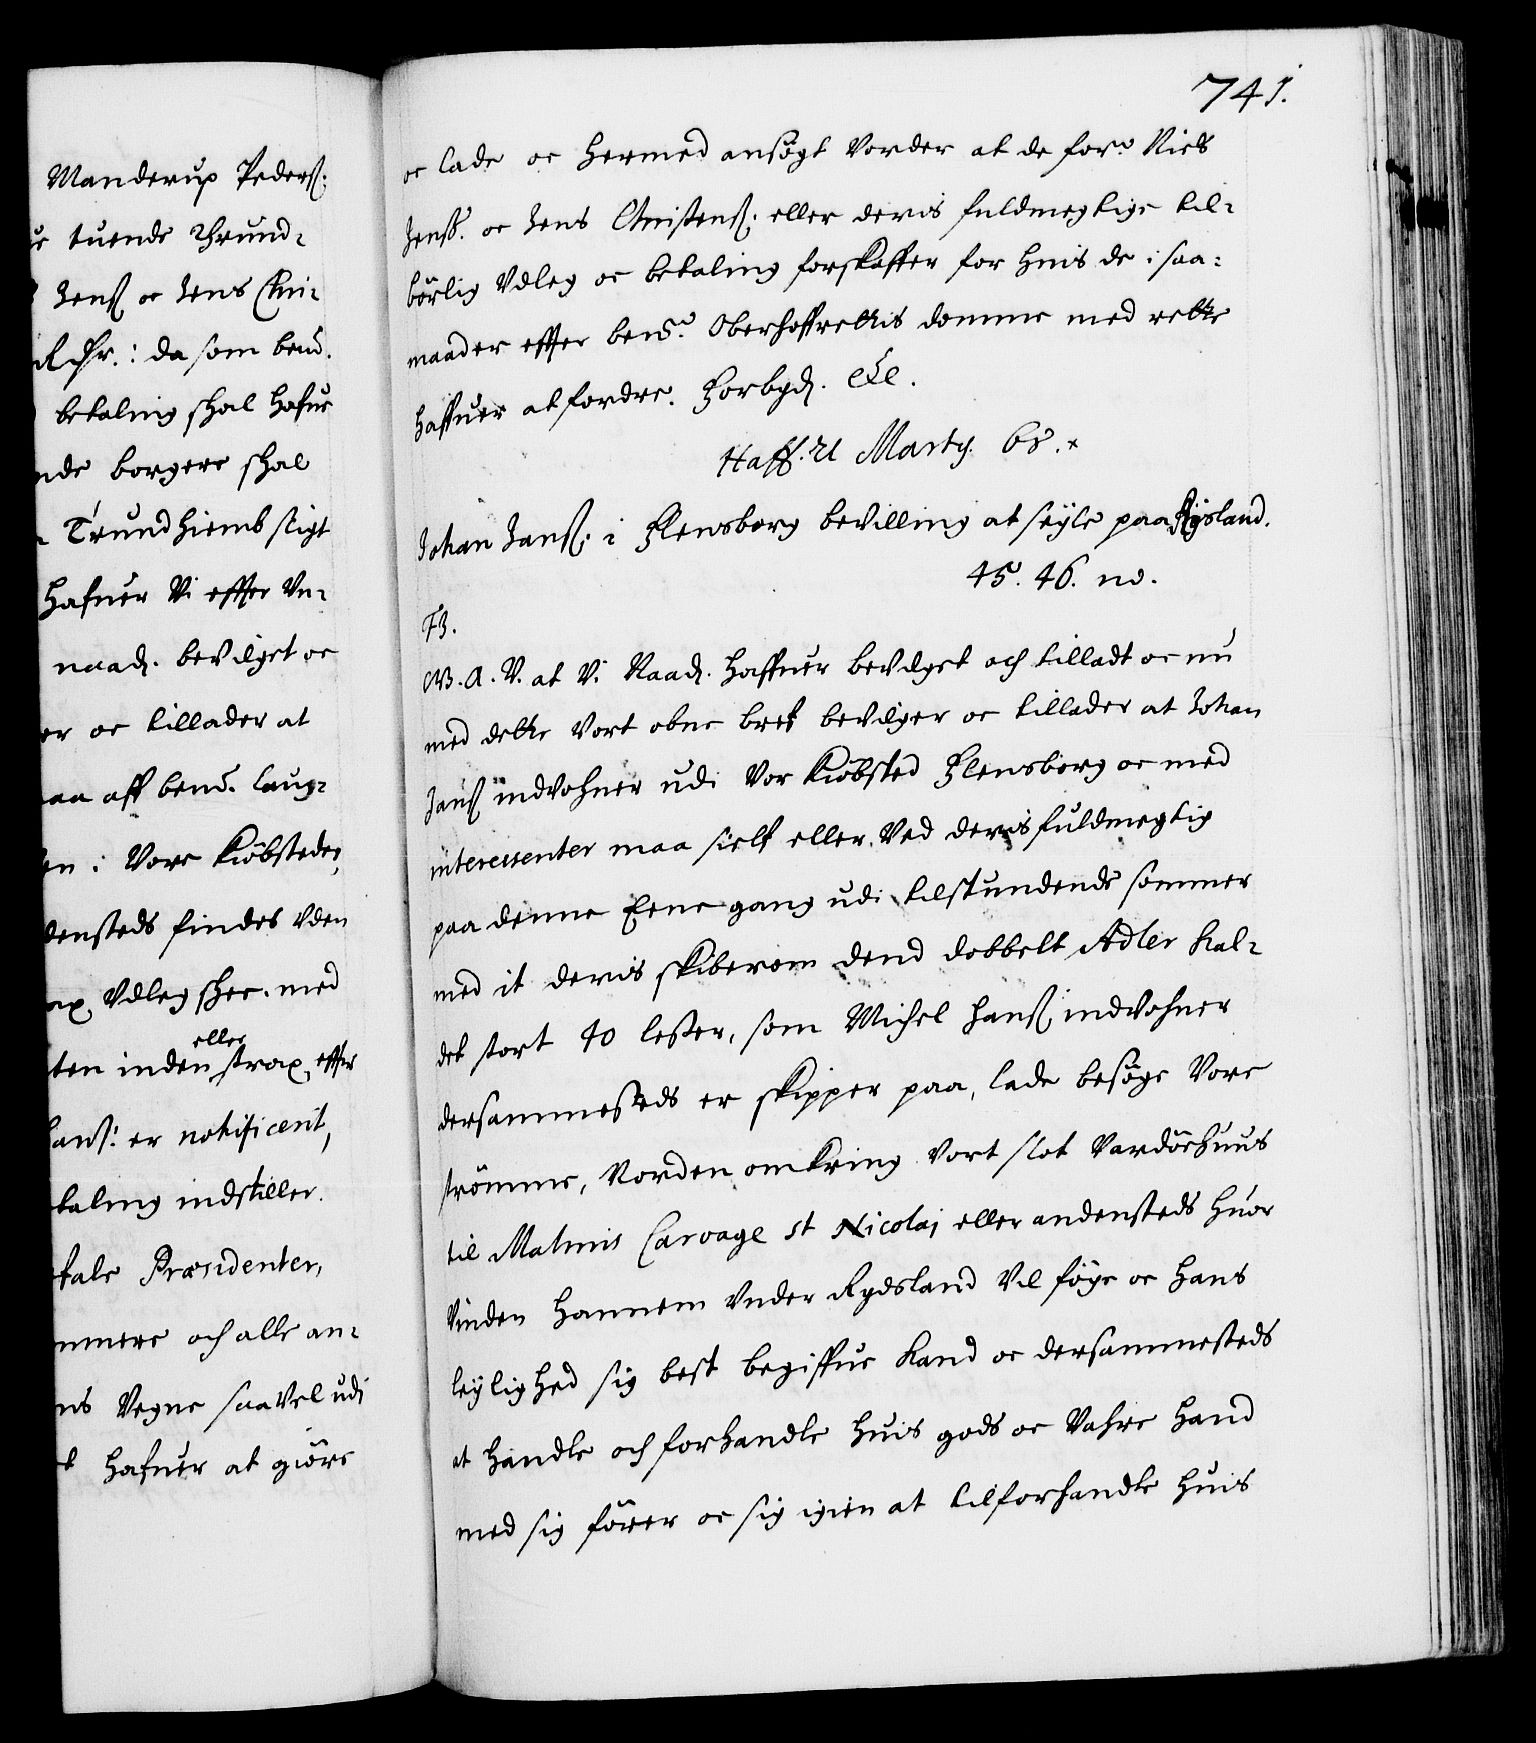 Manderup Peders.
tuende Thrund-
Jens oc Jens Chri-
da som bend.
betaling skal hafue
borgere skal
Trundhiemb stigt
hafuer Vi effter Vn-
naad. bevilget oc
er oc tillader at
aff bend. laug-
i Vore Kiöbsteder,
densteds findes Vden
Vdleg skee. med
eller
ten inden strax effter
er notificerit,
taling indstiller.
Præsidenter,
mmere och alle an-
ns Vegne saavel udi
hafuer at giöre
741.
oc lade oc hermed ansøgt Vorder at de for.ne Niels
Jens. oc Jens Christens. eller deris fuldmegtige til-
börlig Vdleg oc betaling forskaffer for huis de i saa-
maader effter bem.te Oberhoffrettis domme med rette
haffuer at fordre. Forbyd. etc.
Haff. 21 Marty. 68.
Johan Jans. i Flensborg bevilling at seyle paa Rysland.
45. 46. no.
F3.
G.A.V. at Vi Naad. haffuer bevilget och tilladt oc nu
med dette Vort obne bref bevilger oc tillader at Johan
Jans indvohner udi Vor Kiöbsted Flensborg oc med
interessenter maa sielf eller Ved deris fuldmegtig
paa denne Eene gang udi tilstundende sommer
med it deris skiberom dend dobbelt Adler kal-
det stort 40 lester, som Michel Hans indvohner
dersammesteds er skipper paa, lade besøge Vore
strömme, Norden omkring Vort slot Vardöehuus
til Malmis Carvage St Nicolaj eller andensteds huor
Vinden hannem Vnder Rysland Vil føye oc hans
leylighed sig best begiffue kand oc dersammesteds
at handle och forhandle huis gods oc Vahre hand
med sig förer oc sig igien at tilforhandle huis